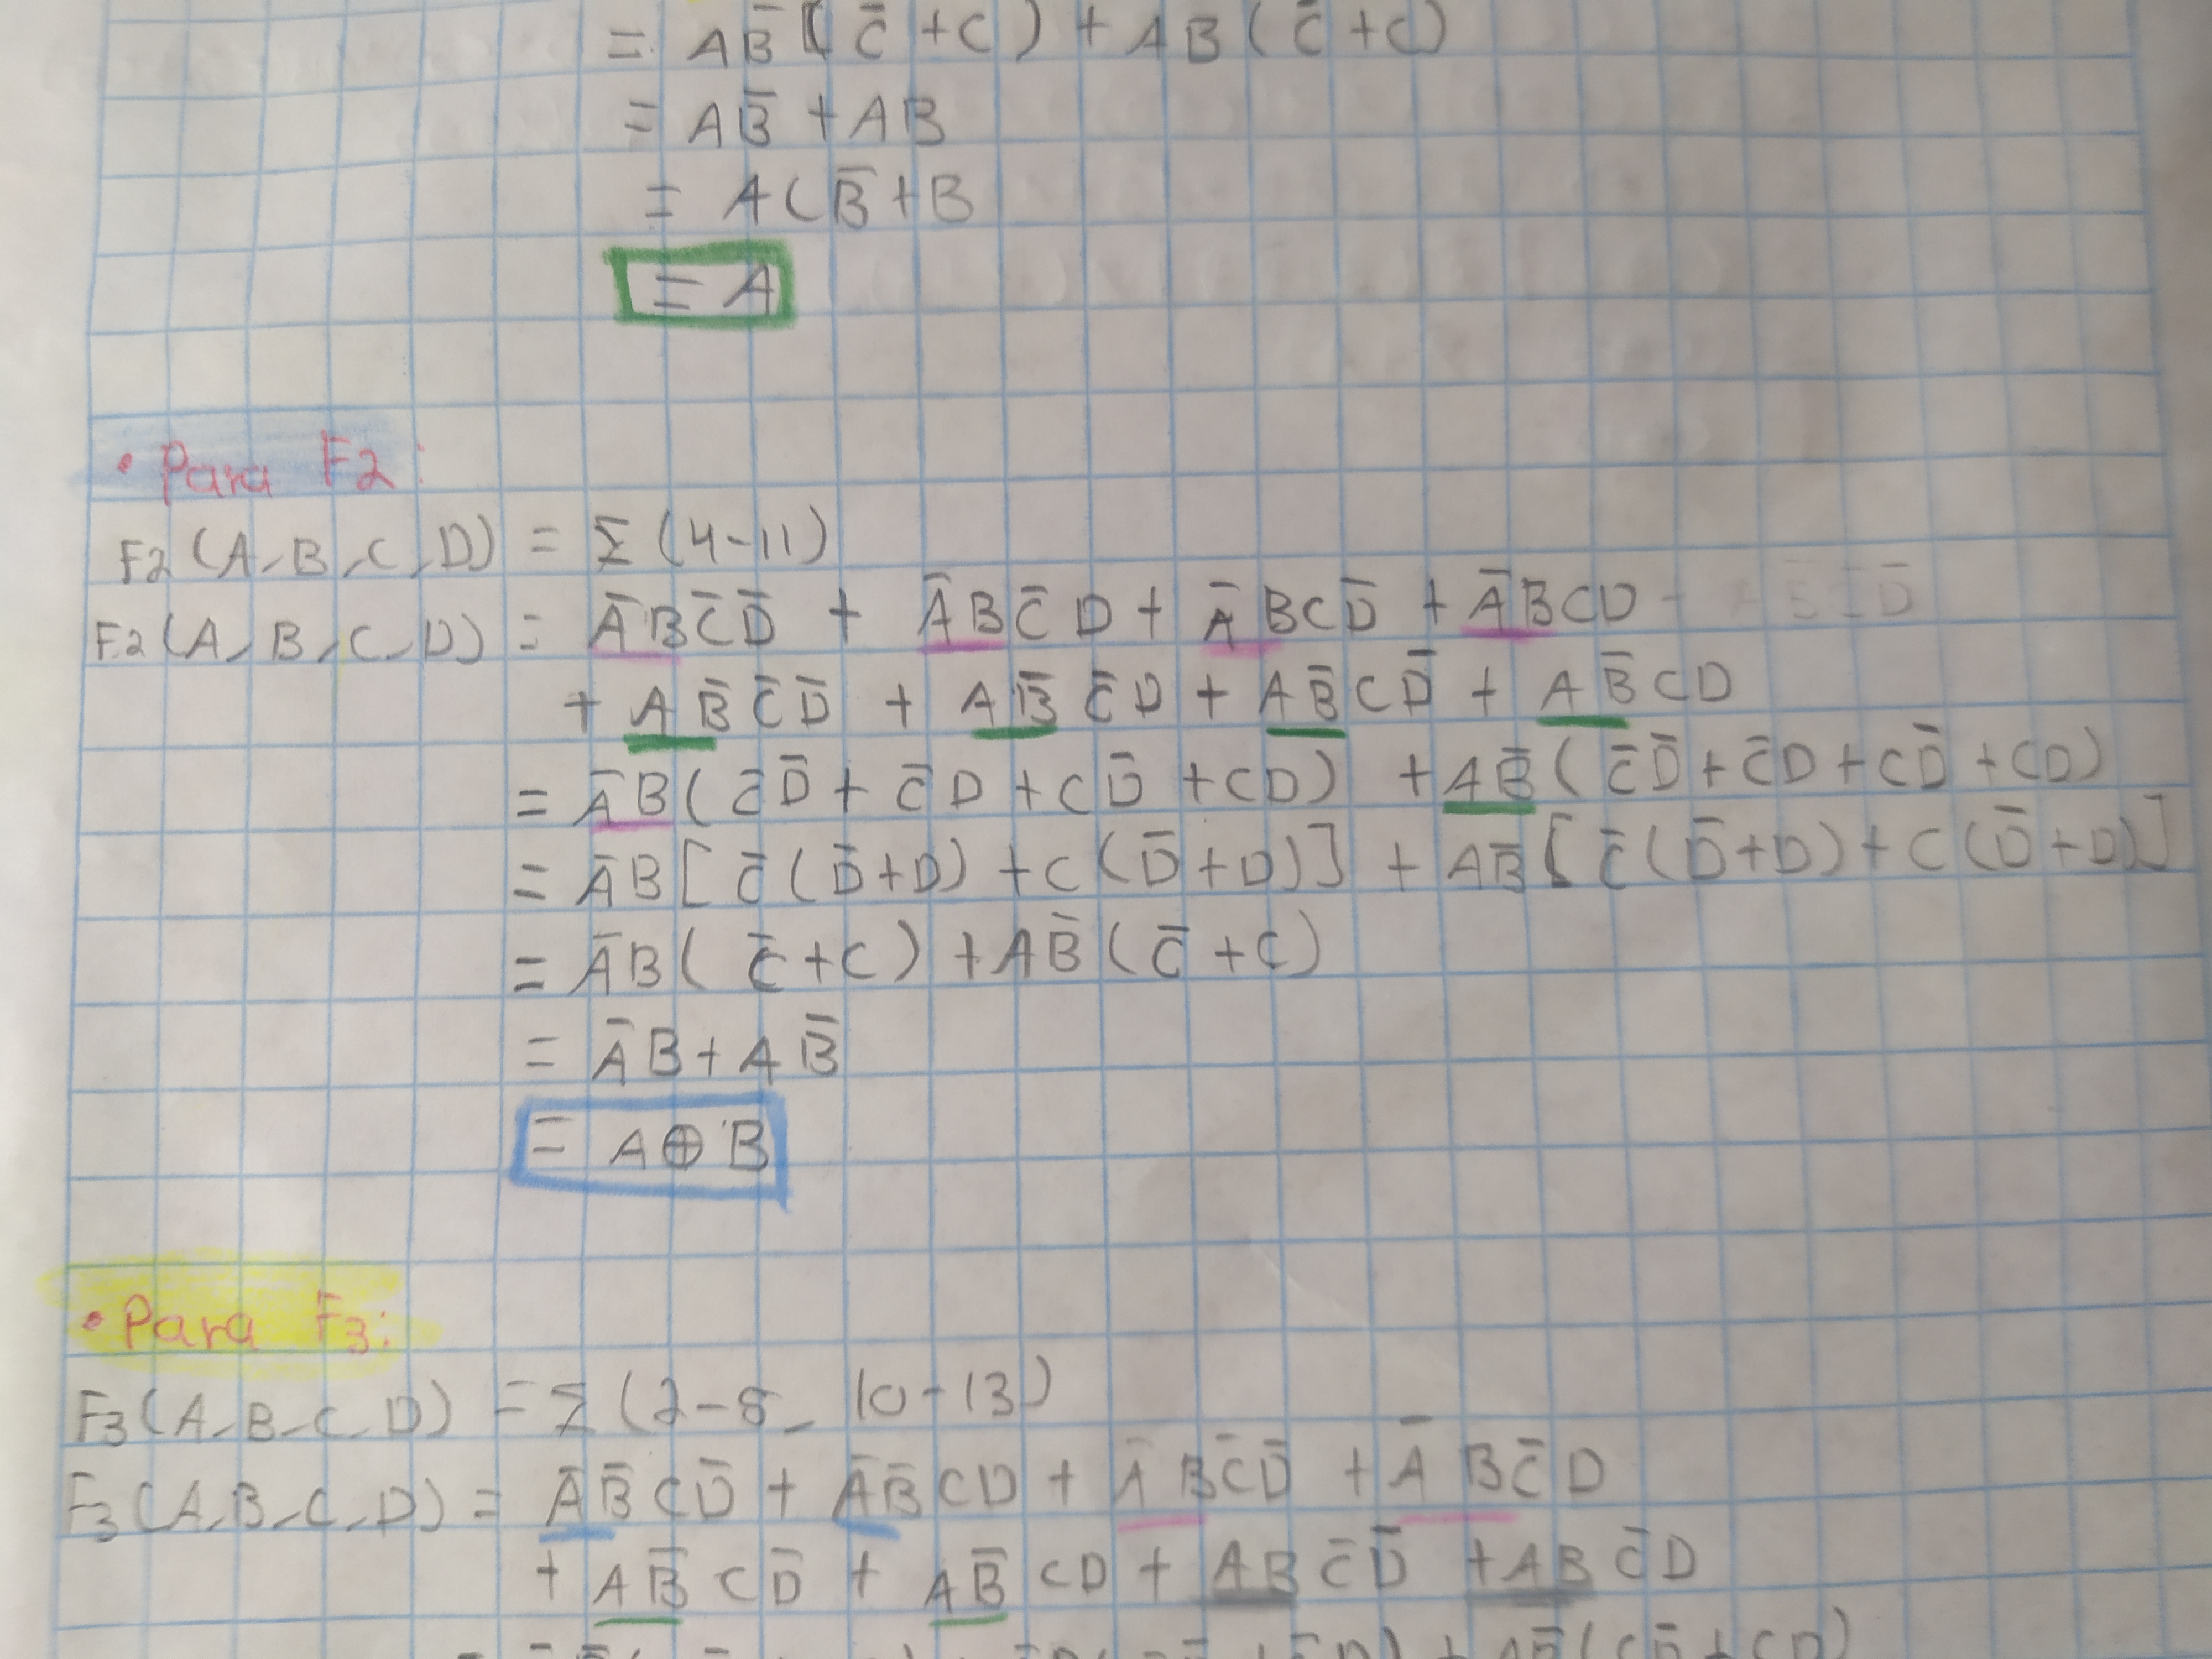 = AB̅ ( C̅ + C ) + AB ( C̅ + C )
= AB̅ + AB
= A ( B̅ + B
= A
• Para F2:
F2 (A, B, C, D) = Σ (4-11)
F2 (A, B, C, D) = A̅BC̅D̅ + A̅BC̅D + A̅BCD̅ + A̅BCD
+ AB̅C̅D̅ + AB̅C̅D + AB̅CD̅ + AB̅CD
= A̅B ( C̅D̅ + C̅D + CD̅ + CD ) + AB̅ ( C̅D̅ + C̅D + CD̅ + CD )
= A̅B [ C̅ ( D̅ + D ) + C ( D̅ + D ) ] + AB̅ [ C̅ ( D̅ + D ) + C ( D̅ + D ) ]
= A̅B ( C̅ + C ) + AB̅ ( C̅ + C )
= A̅B + AB̅
= A ⊕ B
• Para F3:
F3 (A, B, C, D) = Σ (2-5, 10-13)
F3 (A, B, C, D) = A̅B̅CD̅ + A̅B̅CD + A̅BC̅D̅ + A̅BC̅D
+ AB̅CD̅ + AB̅CD + ABC̅D̅ + ABC̅D